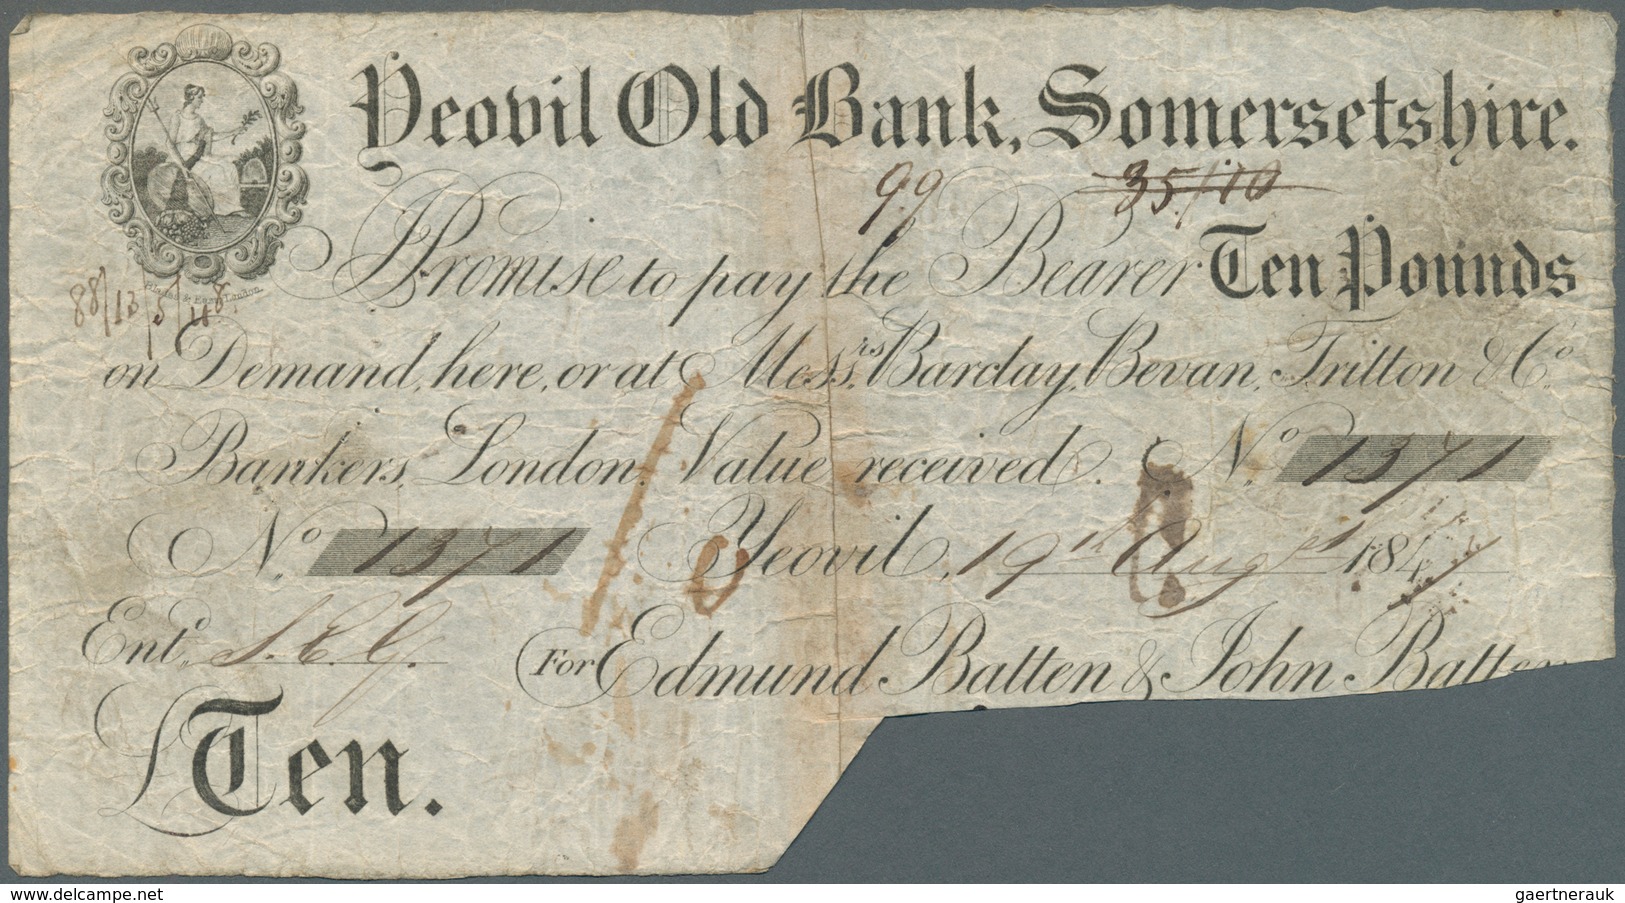 Yeovil Old Bank, Somersetshire.
99 35/10
I Promise to pay the Bearer Ten Pounds
London
88/13/5/
on Demand, here, or at Messrs. Barclay, Bevan, Tritton & Co.
Bankers, London, Value received. No. 1371
No. 1371 Yeovil, 19th Augst 184
Entd. S.E.G. For Edmund Batten & John Batten
£Ten.
DELCAMPE.NET
gaertnerauk